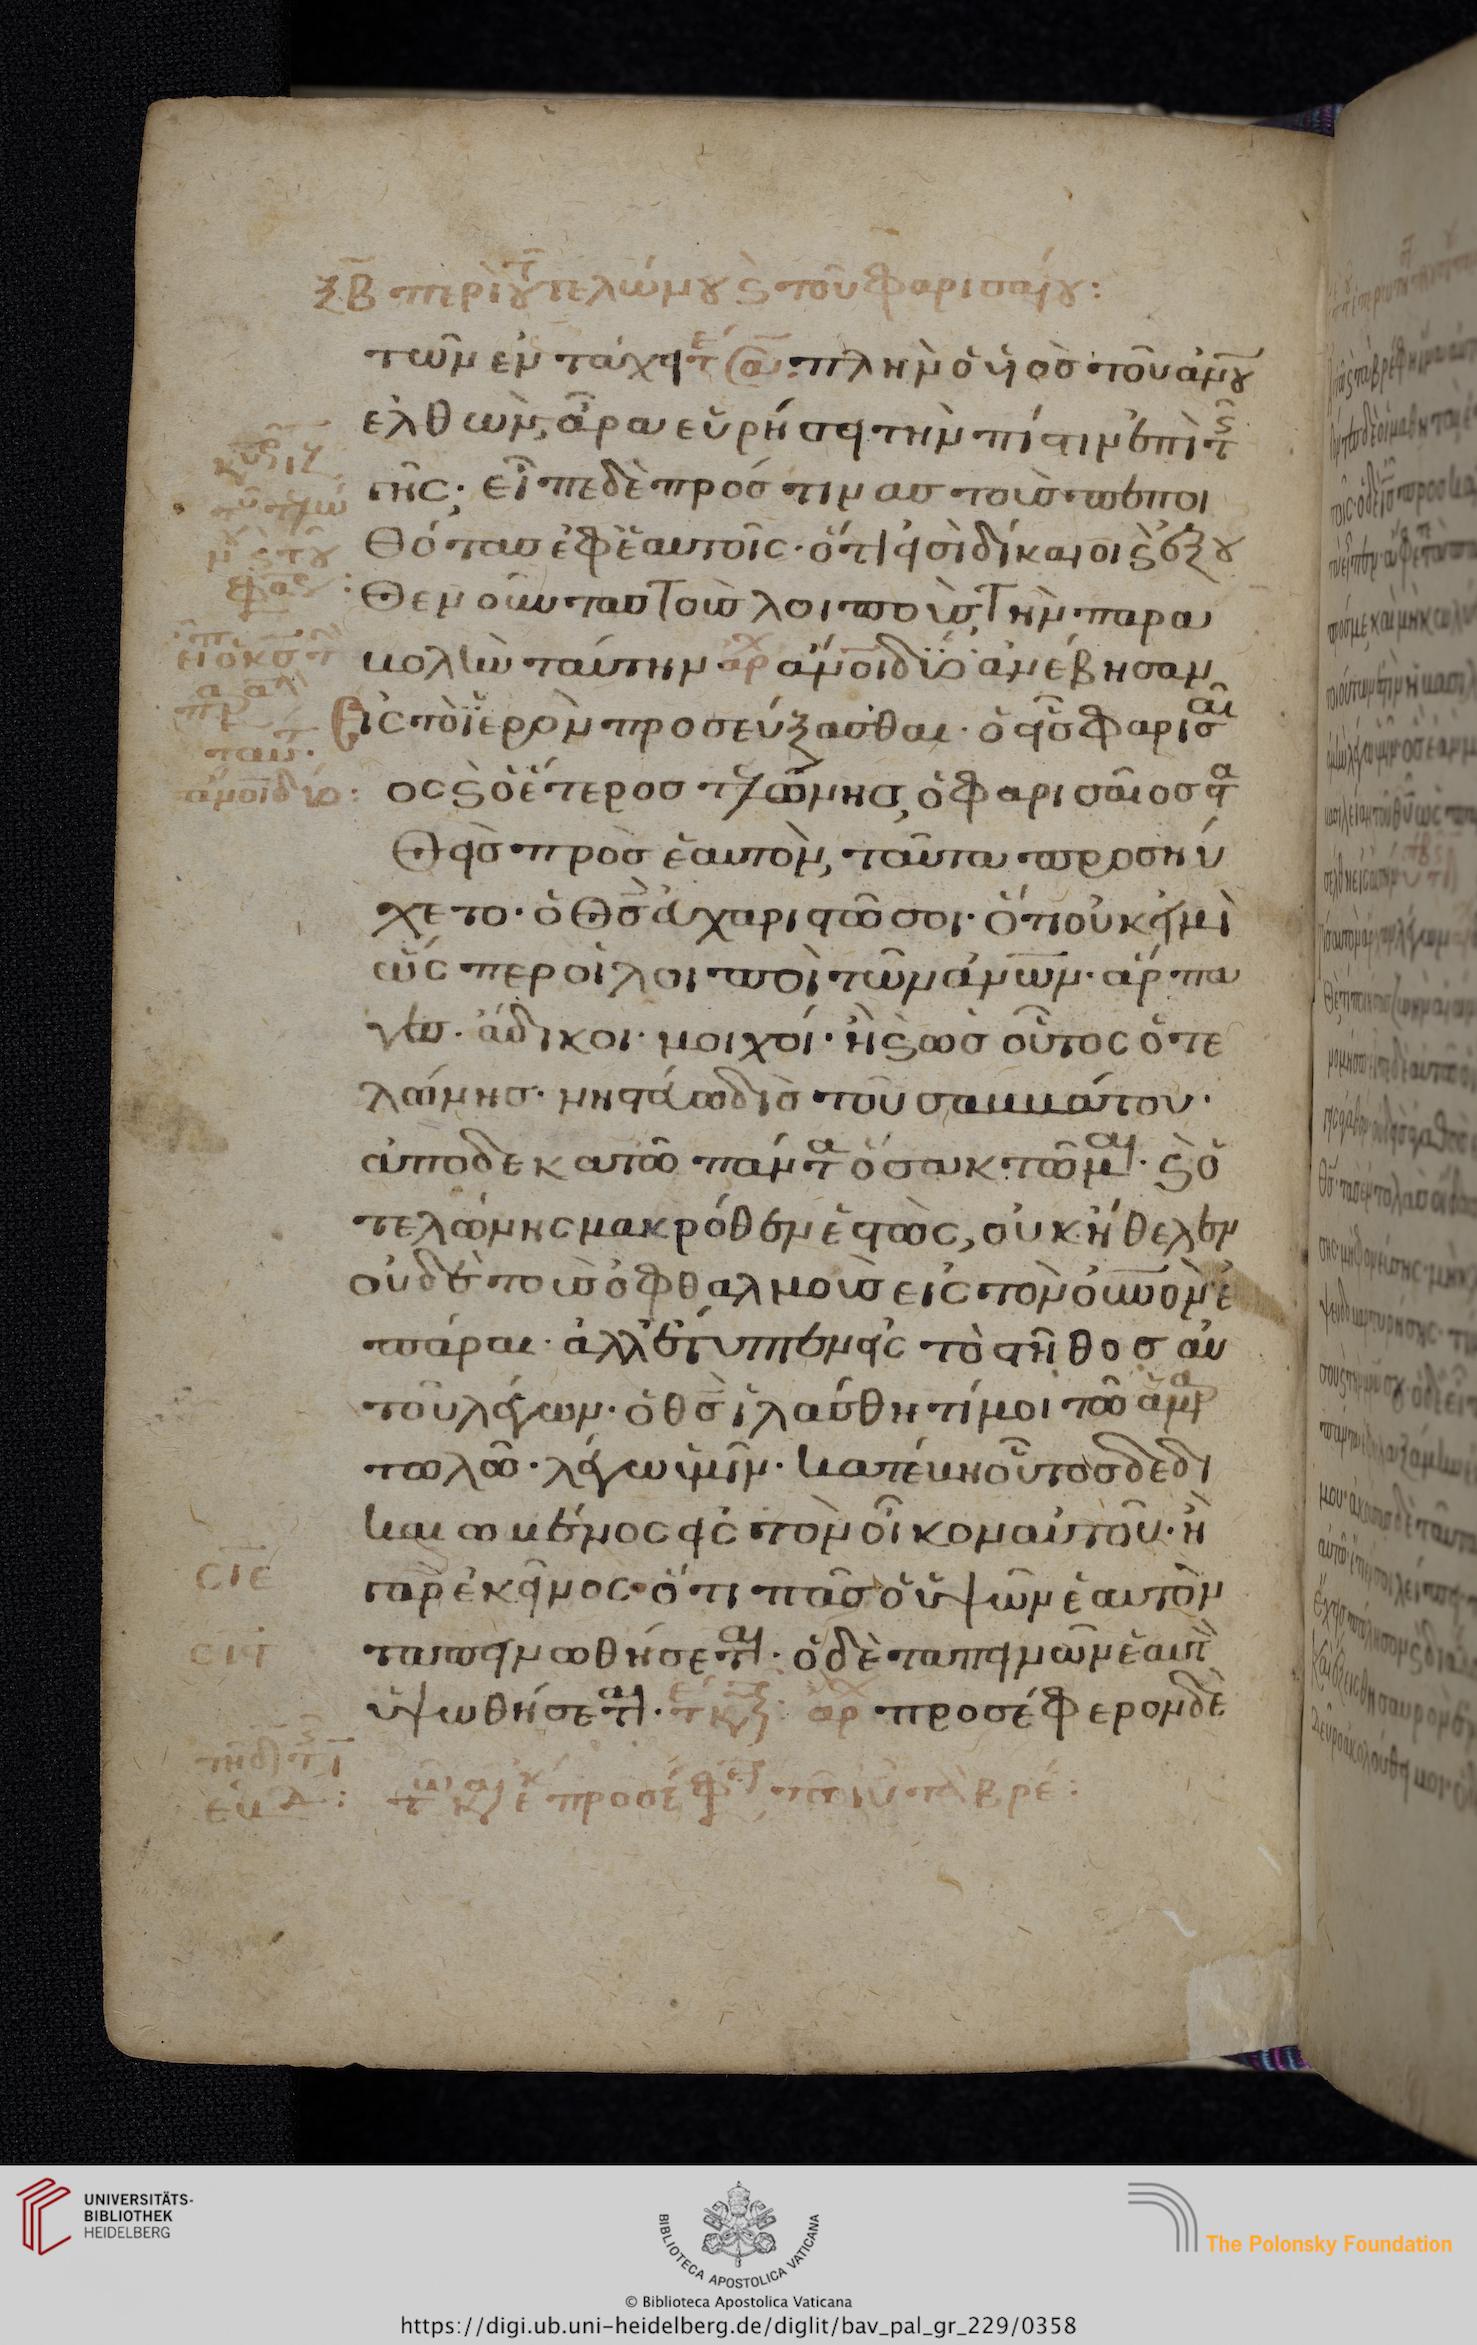 ξβ περὶ τοῦ τελώνου ϗ τοῦ φαρισαίου:
των ἐν τάχει τέ σα: πλὴν ὁ υἱὸσ τοῦ ἀνου
ἐλθὼν, ἆρα εὑρήσει τὴν πίστιν ἐπὶ τῆς
γῆς; εἶπε δὲ πρόσ τινασ τοὺσ πεποι
θότασ ἐφ ἑαυτοῖς· ὅτι εἰσὶ δίκαιοι ϗ ἐξου
θενοῦντασ τοὺσ λοιποὺσ, τὴν παρα
βολὴν ταύτην· ἀρχ ἄνοι δύο ἀνέβησαν
εἰς τὸ ἱερὸν προσεύξασθαι· ὁ εἷσ φαρισαῖ
ος ϗ ὁ ἕτεροσ τελώνησ, ὁ φαρισαῖοσ στα
θεὶσ πρὸσ ἑαυτὸν, ταῦτα προσηύ
χετο· ὁ θσ εὐχαριστῶ σοι· ὅτι οὐκ εἰμὶ
ὥς περ οἱ λοιποὶ τῶν ἀνων· ἅρπα
γεσ· ἄδικοι· μοιχοί· ἢ ϗ ὡσ οὗτος ὁ τε
λώνησ· νηστεύω δὶσ τοῦ σαββάτου·
ἀποδεκατῶ πάντα ὅσα κτῶμαι· ϗ ὁ
τελώνης μακρόθεν ἑστὼς, οὐκ ἤθελεν
οὐδὲ τοὺσ ὀφθαλμοὺσ εἰς τὸν οὐνον ἐ
πάραι· ἀλλ ἔτυπτεν εἰς τὸ στῆθοσ αὐ
τοῦ λέγων· ὁ θσ ἱλάσθητί μοι τῶ ἁμαρ
τωλῶ· λέγω ὑμῖν· κατέβη οὗτοσ δεδι
καιωμένος εἰς τὸν οἶκον αὐτοῦ· ἢ
γὰρ ἐκεῖνος· ὅτι πᾶσ ὁ ὑψῶν ἑαυτὸν
ταπεινωθήσεται· ὁ δὲ ταπεινῶν ἑαυτὸ
ὑψωθήσεται· τέ κυ ἀρχ προσέφερον δὲ
κυ ιζ
τοῦ τελώ
νου ϗ τοῦ
φαρ:
εἶπ ὁ κσ τὴ
παρ
ταύτ·
ἄνοι δύο:
σιε
σιϛ